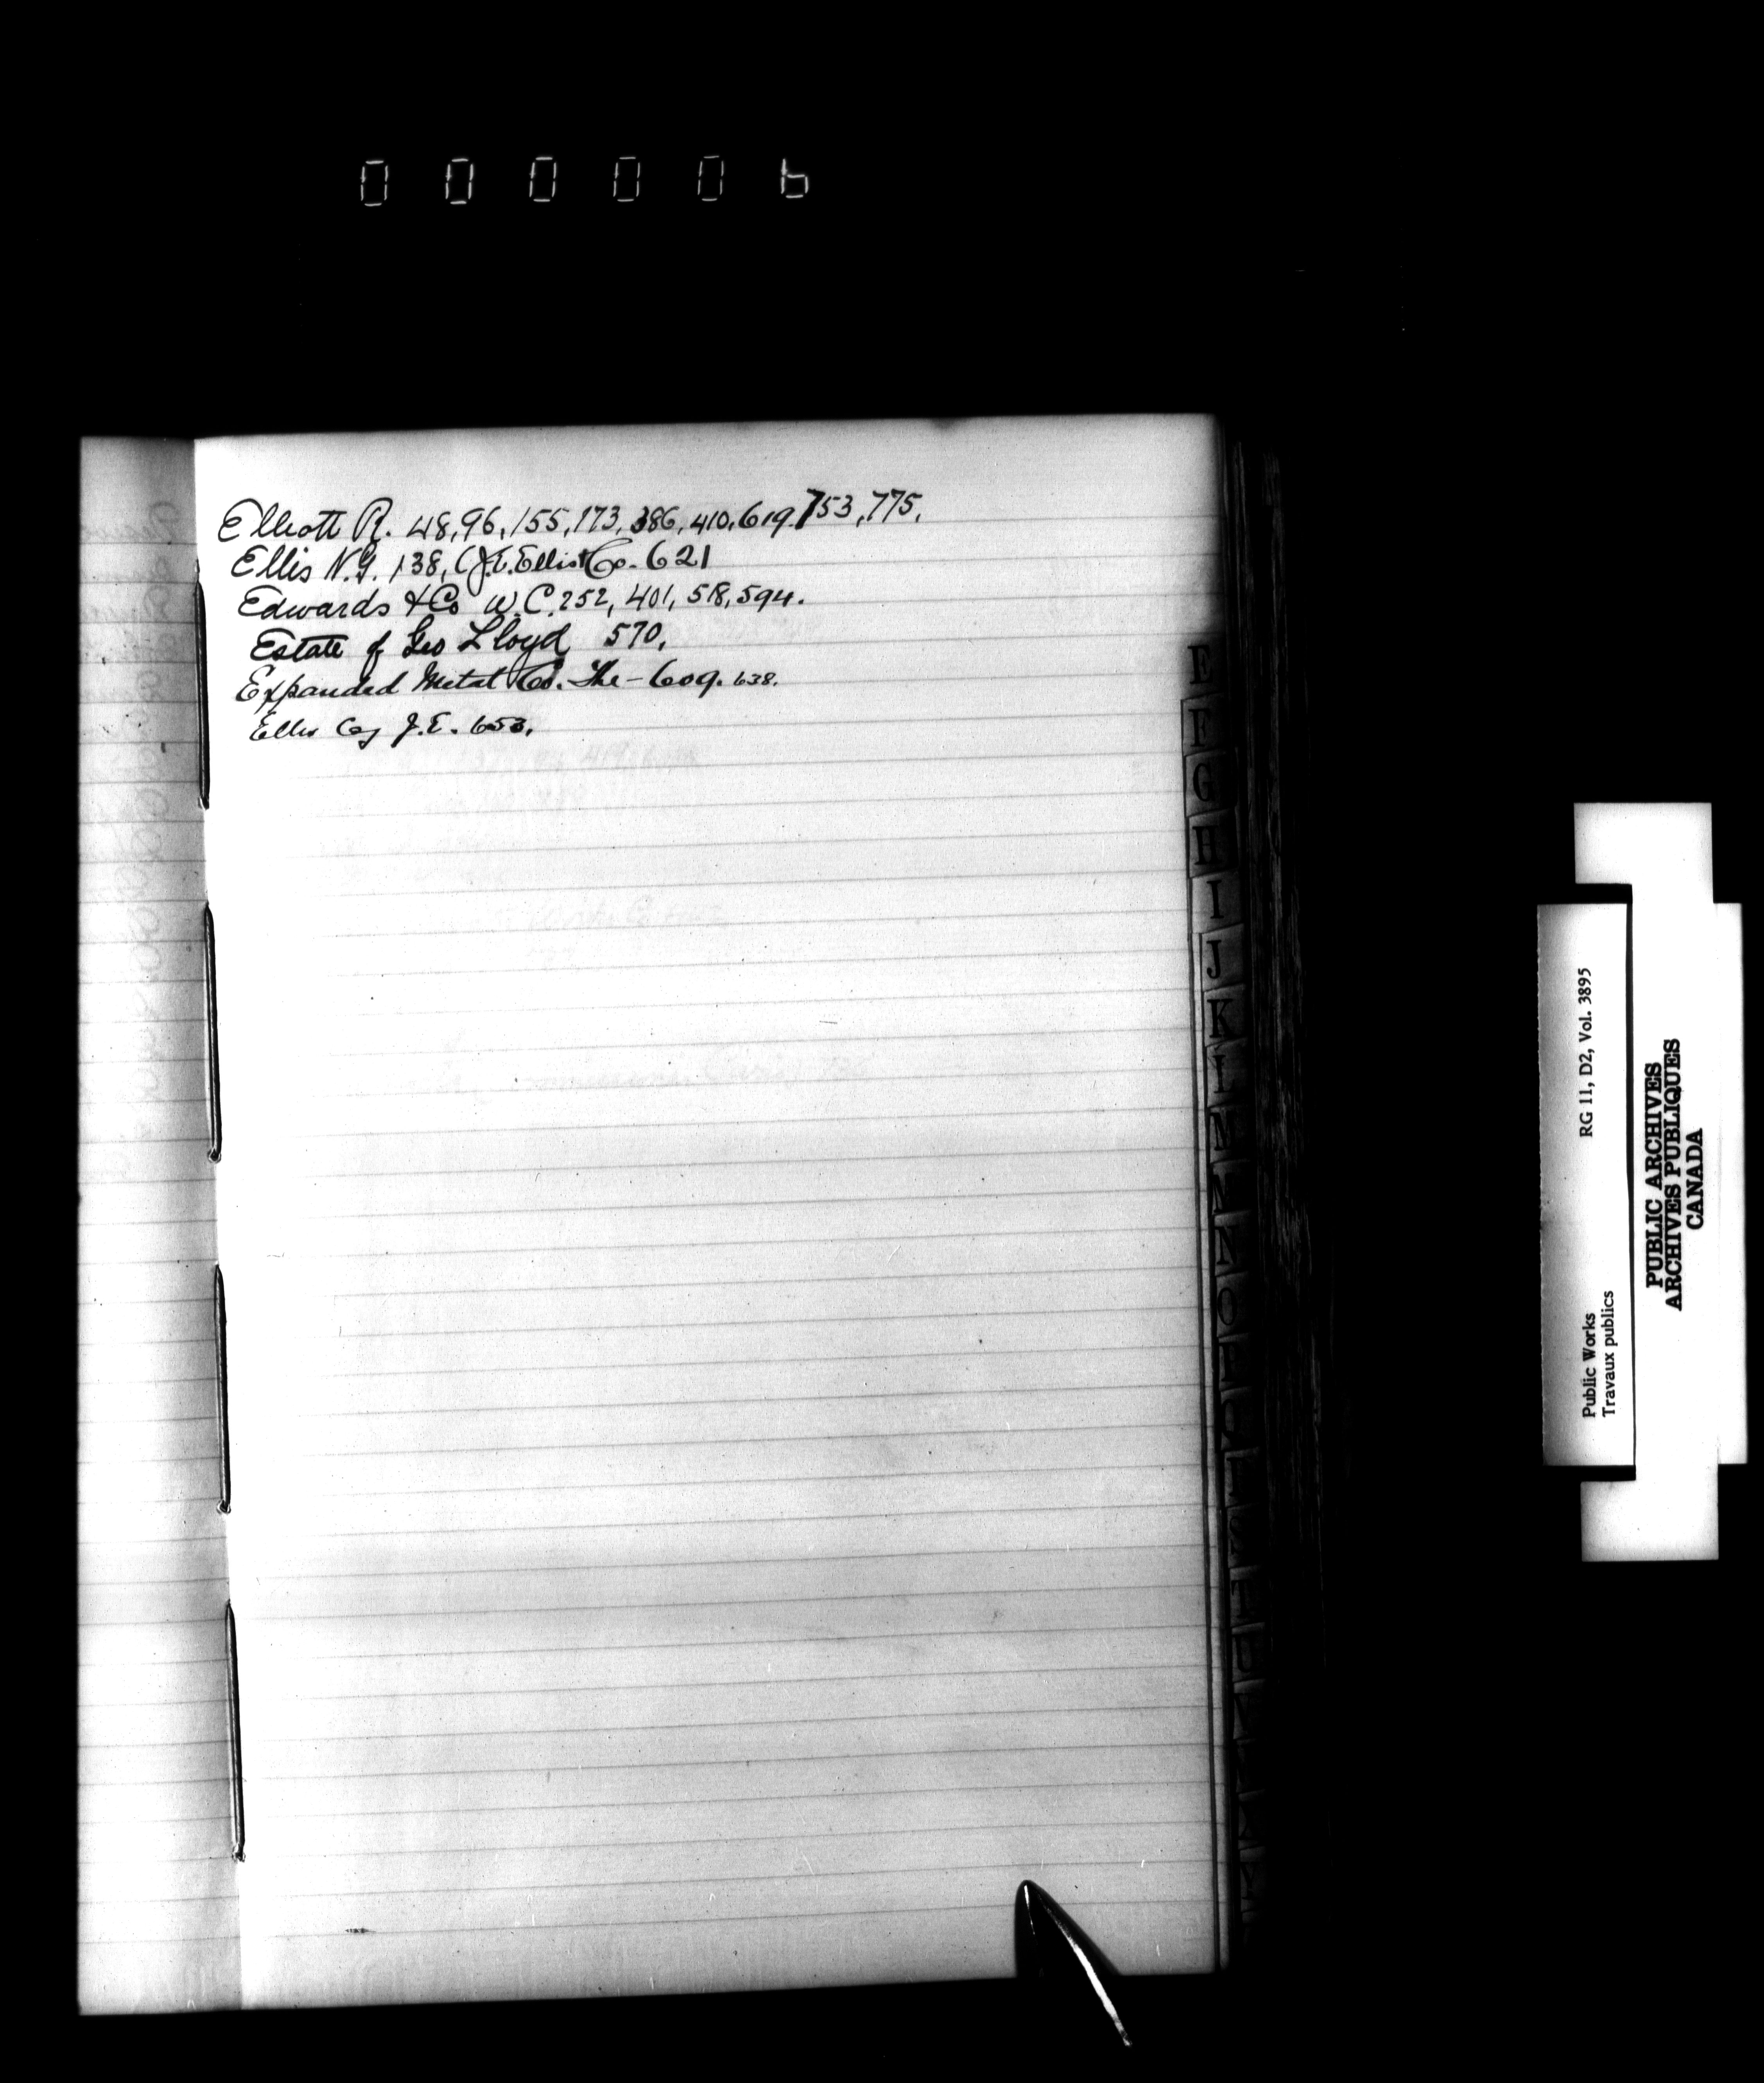 000006
Elliott R. 48,96,155,173,386,410,619.753,775,
Ellis N.G. 138, (J.E. Ellis & Co. 621
Edwards & Co W.C. 252, 401, 518, 594.
Estate of Geo Lloyd 570,
Expanded Metal Co. The - 609. 638.
Ellis Coy J.E. 653,
E
F
G
H
I
J
K
L
M
N
O
P
Q
R
S
T
U
V
Public Works
Travaux publics
RG 11, D2, Vol. 3895
PUBLIC ARCHIVES
ARCHIVES PUBLIQUES
CANADA